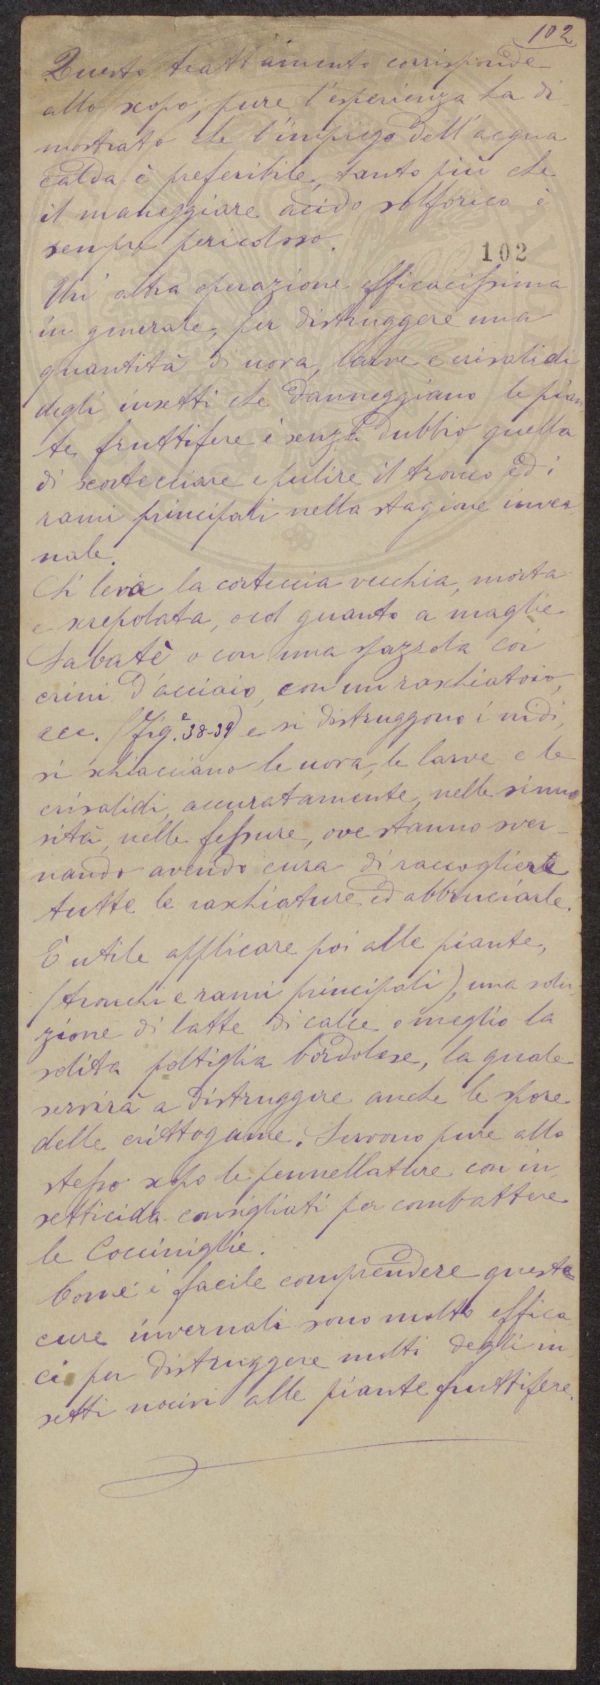 102
Questo trattamento corrisponde
allo scopo; pure l'esperienza ha di
mostrato che l'impiego dell'acqua
calda è preferibile, tanto più che
il maneggiare acido solforico è
sempre pericoloso.
102
Un' altra operazione efficacissima
in generale, per distruggere una
quantità di uova, larve e crisalidi
degli insetti che danneggiano le pian
te fruttifere è senza dubbio quella
di scortecciare e pulire il tronco ed i
rami principali nella stagione inver
nale.
Si leva la corteccia vecchia, morta
e screpolata, o col guanto a maglie
Sabatè o con una spazzola coi
crini d'acciaio, con un raschiatoio,
ecc. (Fig.e 38-39) e si distruggono i nidi,
si schiacciano le uova, le larve e le
crisalidi, accuratamente, nelle sinuo
sità, nelle fessure, ove stanno sver-
nando avendo cura di raccogliere
tutte le raschiature ed abbruciarle.
È utile applicare poi alle piante,
(tronchi e rami principali), una solu
zione di latte di calce o meglio la
solita poltiglia bordolese, la quale
servirà a distruggere anche le spore
delle crittogame. Servono pure allo
stesso scopo le pennellature con in
setticida consigliati per combattere
le Cocciniglie.
Come è facile comprendere queste
cure invernali sono molto effica
ci per distruggere molti degli in
setti nocivi alle piante fruttifere.